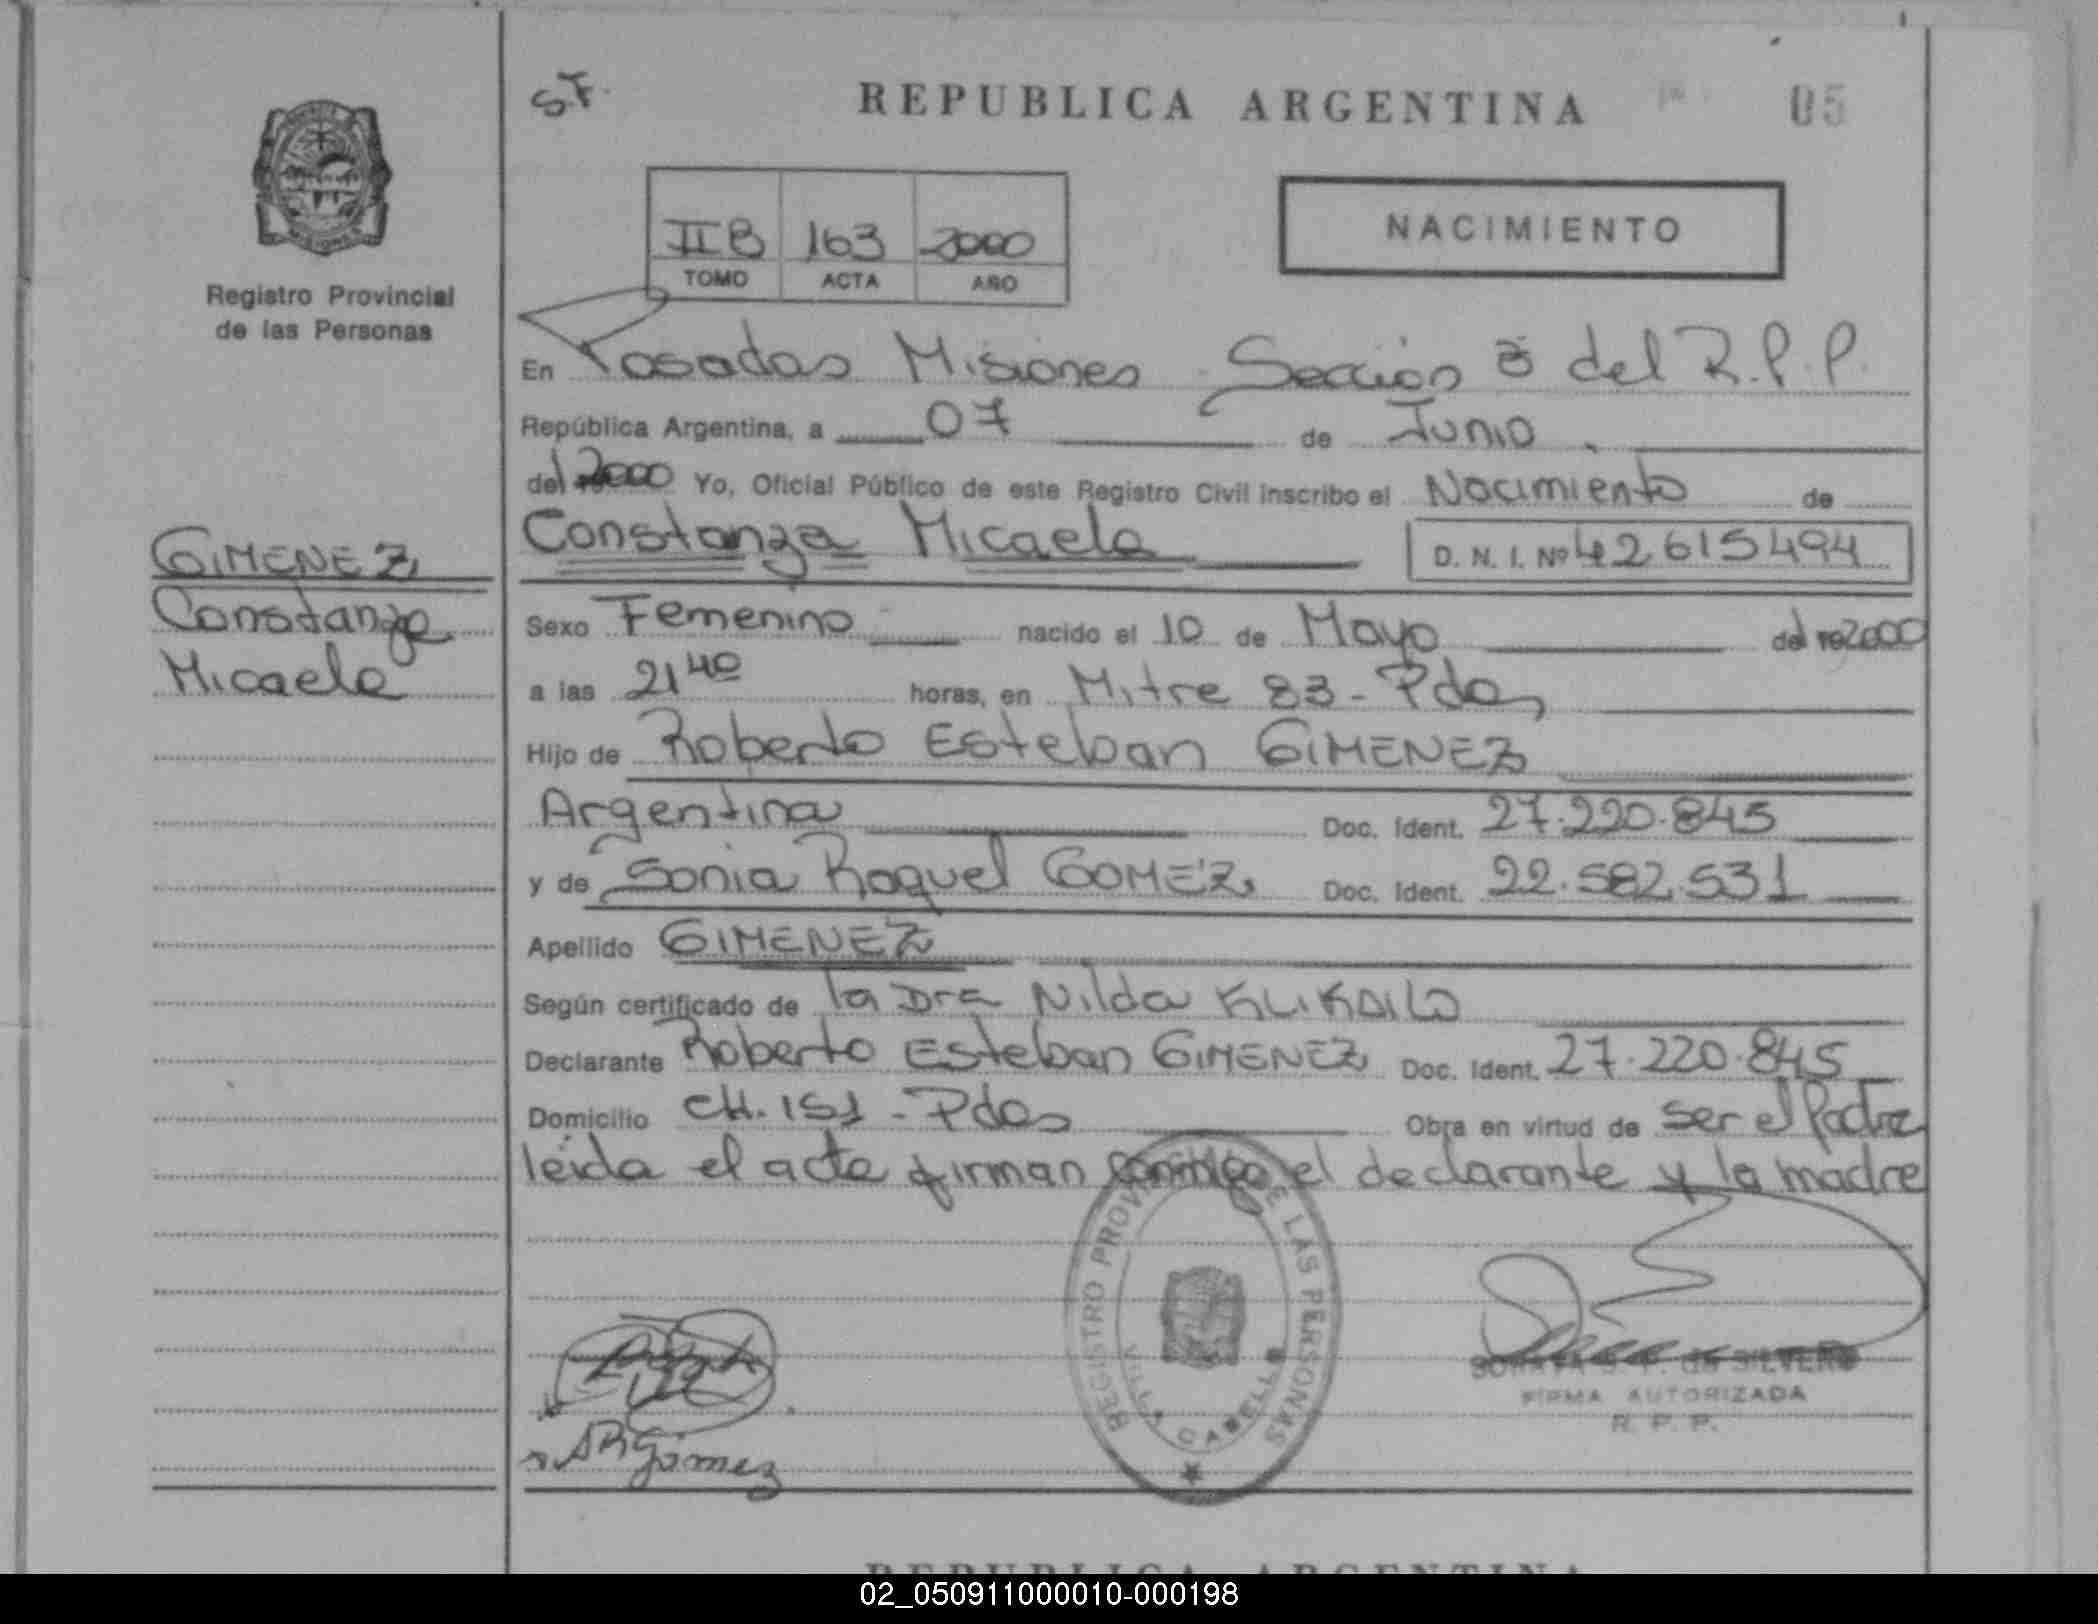 S.F.
REPUBLICA ARGENTINA
05
IIB 163 2000
TOMO ACTA AÑO
NACIMIENTO
Registro Provincial
de las Personas
En Posadas Misiones Sección 3 del R.P.P.
República Argentina, a 07 de Junio
del 2000 Yo, Oficial Público de este Registro Civil inscribo el Nacimiento de
Constanza Micaela D. N. I. Nº 42615494
GIMENEZ
Constanza
Micaela
Sexo Femenino nacido el 10 de Mayo del 2000
a las 21 40 horas, en Mitre 83 - Pdas
Hijo de Roberto Esteban GIMENEZ
Argentina Doc. Ident. 27.220.845
y de Sonia Raquel GOMEZ Doc. Ident. 22.582.531
Apellido GIMENEZ
Según certificado de la Dra Nilda
Declarante Roberto Esteban GIMENEZ Doc. Ident. 27.220.845
Domicilio CH. 151 - Pdas Obra en virtud de ser el Padre
leída el acta firman conmigo el declarante y la madre
REGISTRO PROVINCIAL DE LAS PERSONAS
VILLA CABELLO
de SILVERO
FIRMA AUTORIZADA
R. P. P.
Gómez
REPUBLICA ARGENTINA
02_050911000010-000198